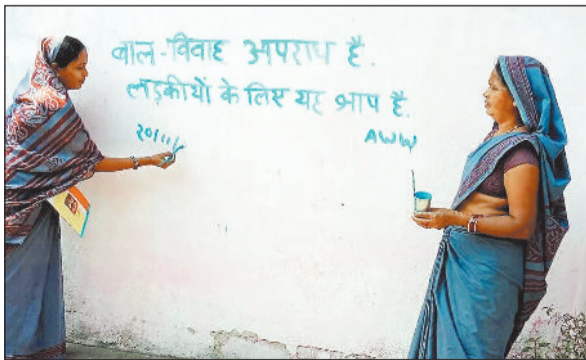 बाल-विवाह अपराध है.
लड़कीयों के लिए यह श्राप है.
AWW